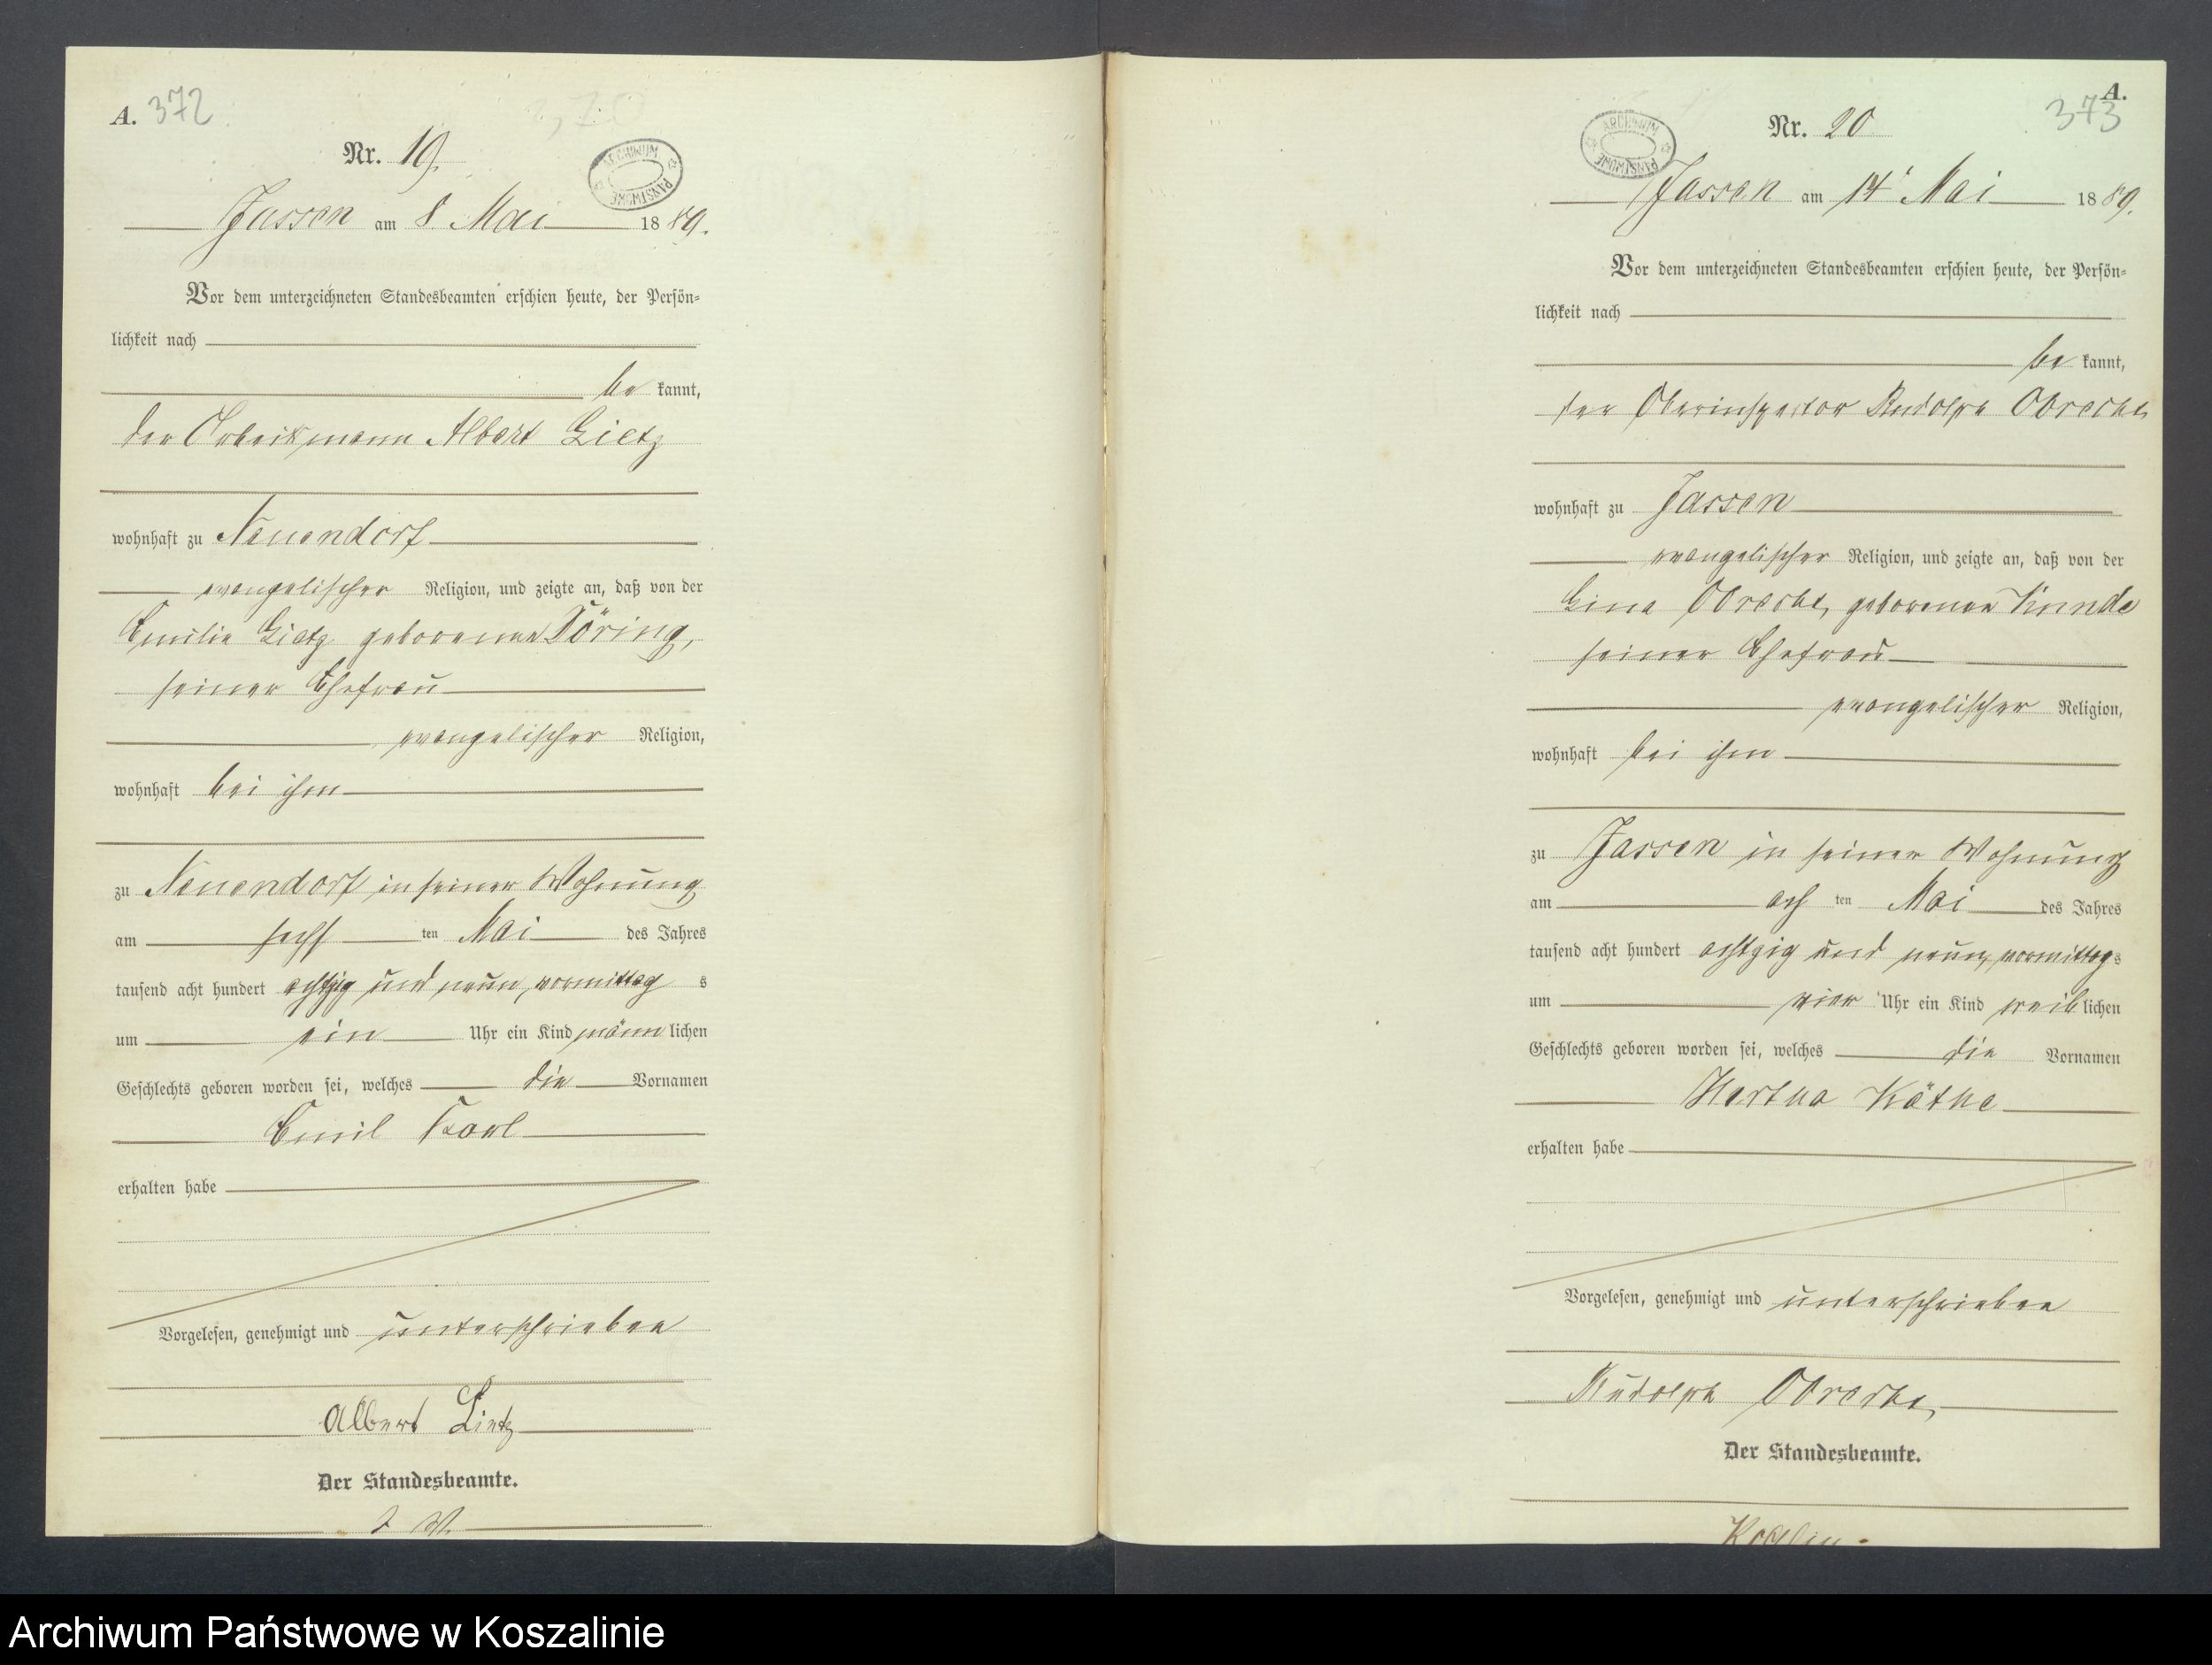 A. 372
Nr. 19.
ARCHIWUM PAŃSTWOWE
Jassen am 8 Mai 1889.
Vor dem unterzeichneten Standesbeamten erschien heute, der Persön=
lichkeit nach
be kannt,
der Arbeitsmann Albert Lietz
wohnhaft zu Neuendorf
evangelischer Religion, und zeigte an, daß von der
Emilie Lietz geborenen Döring,
seiner Ehefrau
evangelischer Religion,
wohnhaft bei ihm
zu Neuendorf in seiner Wohnung
am sechs ten Mai des Jahres
tausend acht hundert achtzig und neun, vormittag s
um ein Uhr ein Kind männ lichen
Geschlechts geboren worden sei, welches die Vornamen
Emil Karl
erhalten habe
Vorgelesen, genehmigt und unterschrieben
Albert Lietz
Der Standesbeamte.
A.
373
Nr. 20
ARCHIWUM PAŃSTWOWE
Jassen am 14 Mai 1889.
Vor dem unterzeichneten Standesbeamten erschien heute, der Persön=
lichkeit nach
be kannt,
der Oberinspector Rudolph Obrecht
wohnhaft zu Jassen
evangelischer Religion, und zeigte an, daß von der
Obrecht, geborenen
seiner Ehefrau
evangelischer Religion,
wohnhaft bei ihm
zu Jassen in seiner Wohnung
am ach ten Mai des Jahres
tausend acht hundert achtzig und neun, vormittag s
um vier Uhr ein Kind weib lichen
Geschlechts geboren worden sei, welches die Vornamen
Hertha Käthe
erhalten habe
Vorgelesen, genehmigt und unterschrieben
Rudolph Obrecht,
Der Standesbeamte.
Archiwum Państwowe w Koszalinie